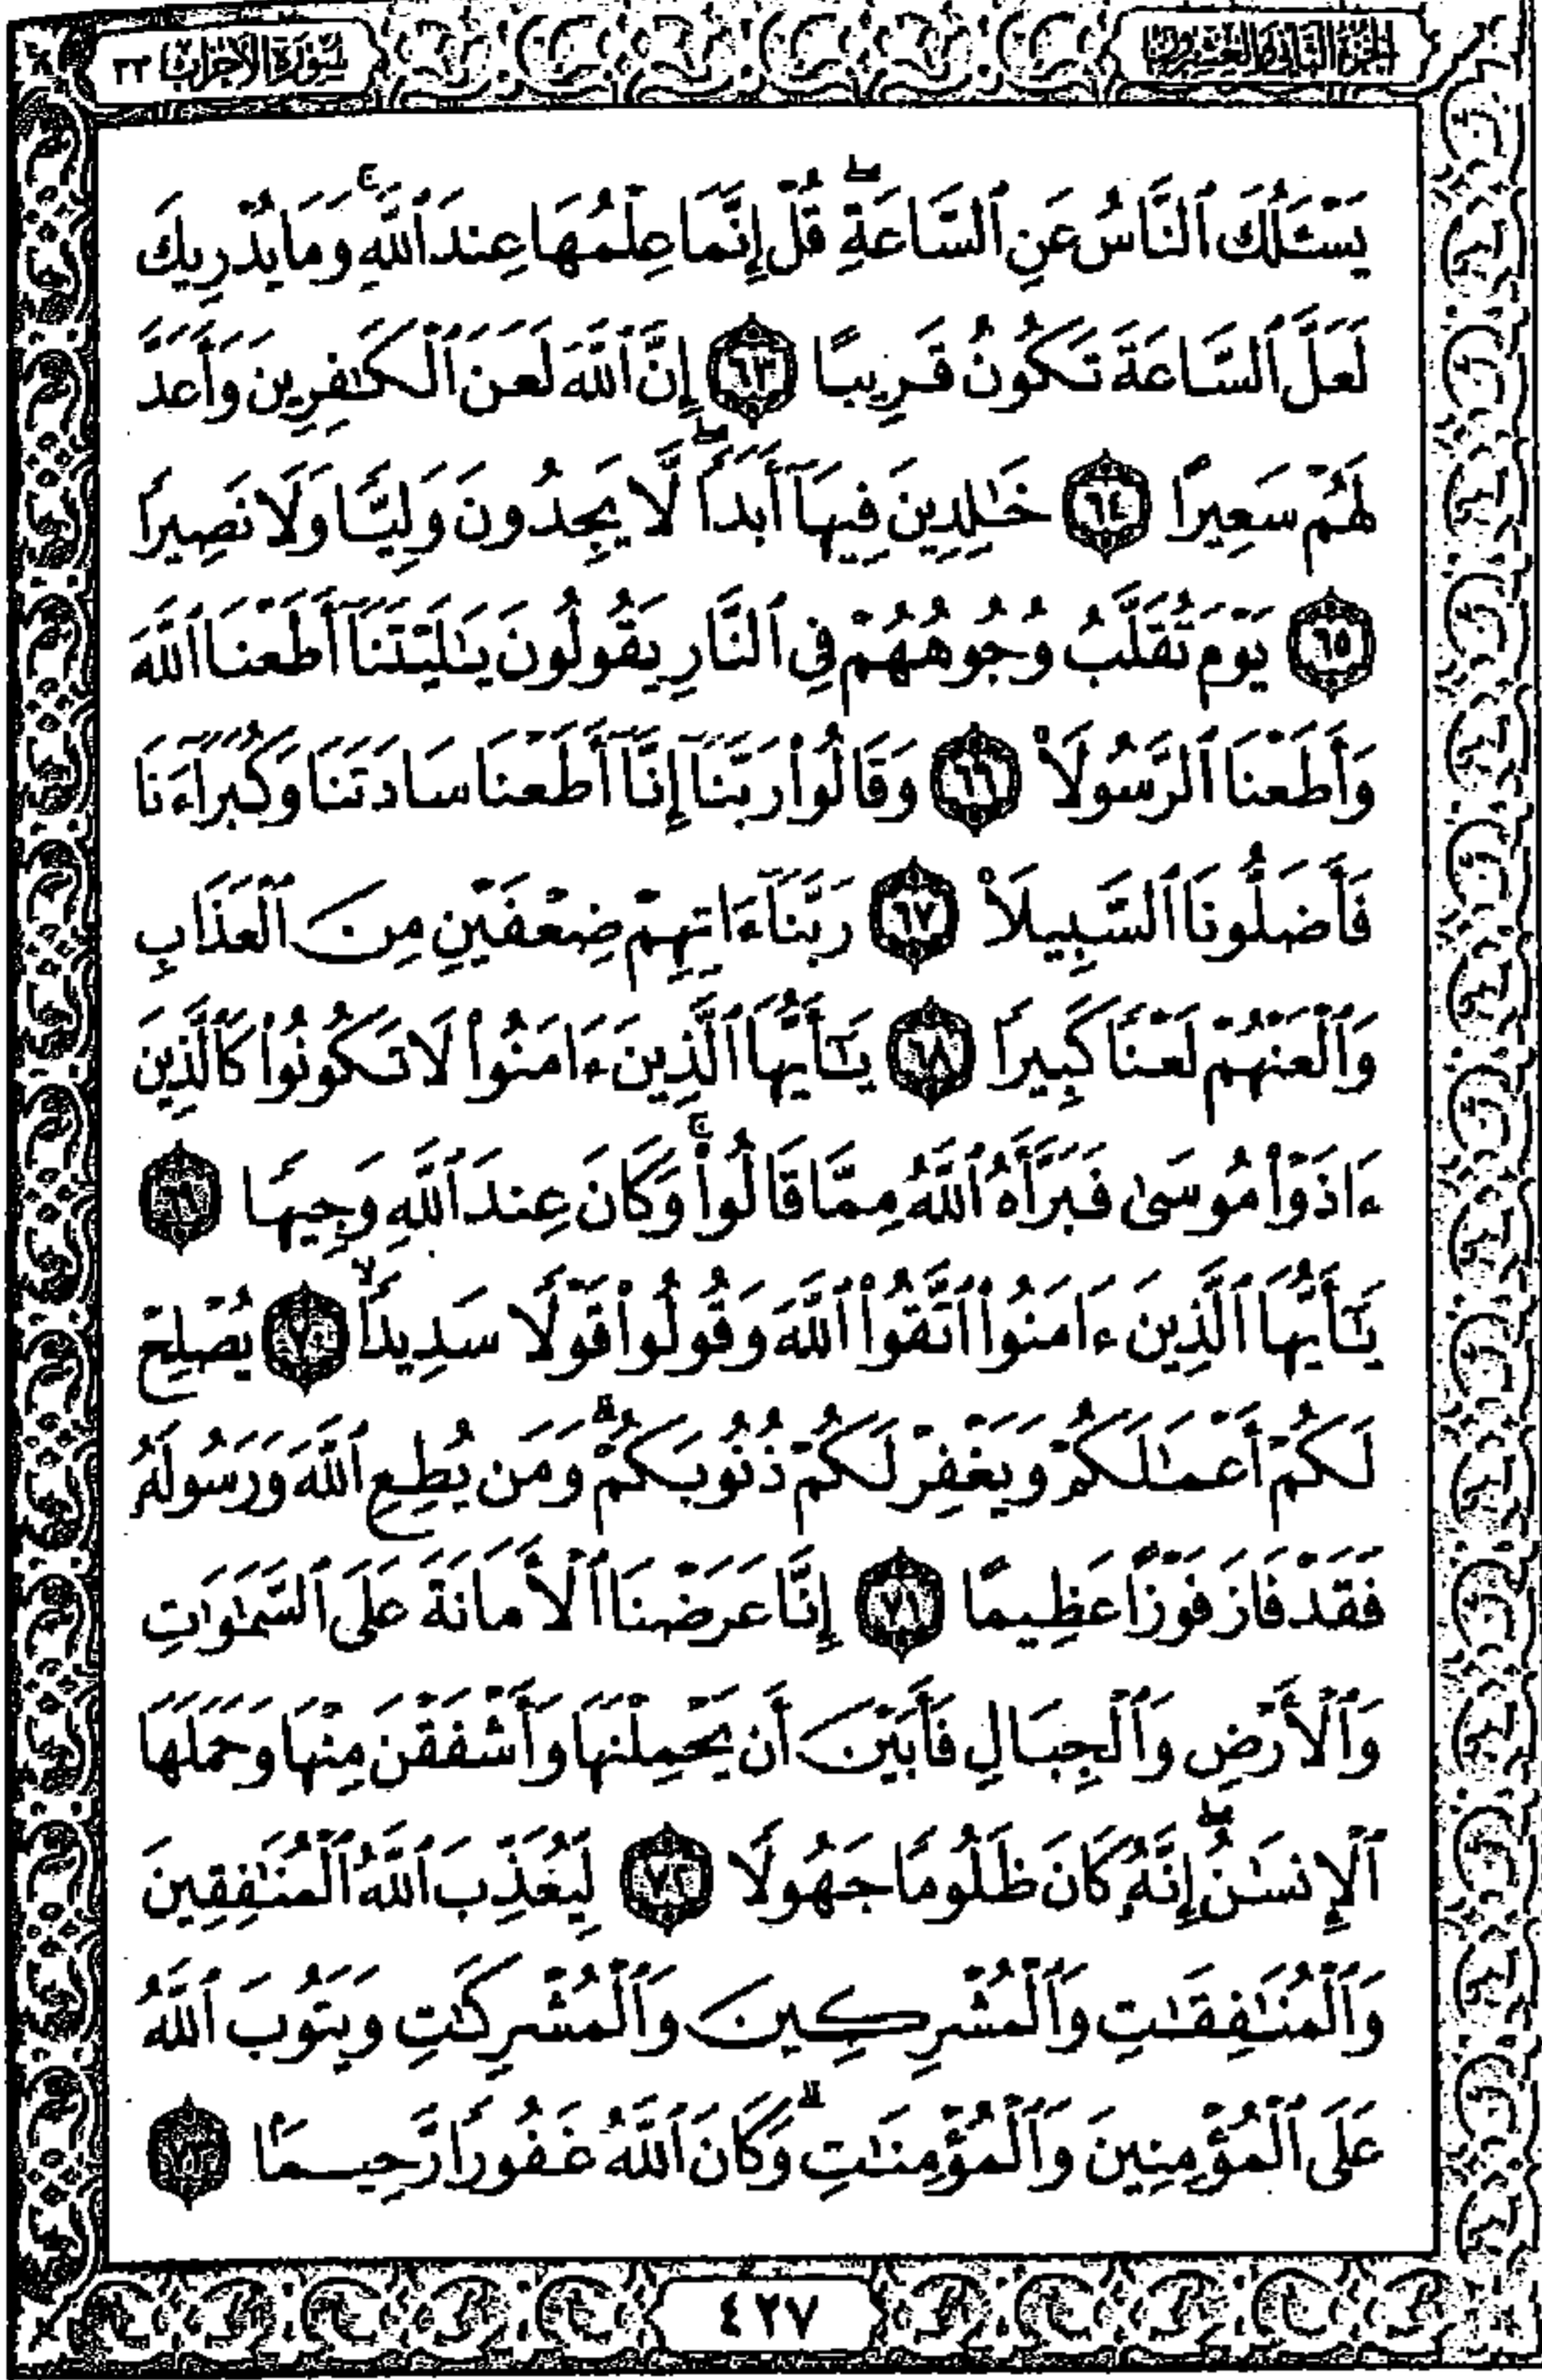 الجزء الثاني والعشرون
سورة الأحزاب ٣٣
يَسْـَٔلُكَ ٱلنَّاسُ عَنِ ٱلسَّاعَةِ ۖ قُلْ إِنَّمَا عِلْمُهَا عِندَ ٱللَّهِ ۚ وَمَا يُدْرِيكَ
لَعَلَّ ٱلسَّاعَةَ تَكُونُ قَرِيبًا ٦٣ إِنَّ ٱللَّهَ لَعَنَ ٱلْكَـٰفِرِينَ وَأَعَدَّ
لَهُمْ سَعِيرًا ٦٤ خَـٰلِدِينَ فِيهَآ أَبَدًا ۖ لَّا يَجِدُونَ وَلِيًّا وَلَا نَصِيرًا
٦٥ يَوْمَ تُقَلَّبُ وُجُوهُهُمْ فِى ٱلنَّارِ يَقُولُونَ يَـٰلَيْتَنَآ أَطَعْنَا ٱللَّهَ
وَأَطَعْنَا ٱلرَّسُولَا۠ ٦٦ وَقَالُوا۟ رَبَّنَآ إِنَّآ أَطَعْنَا سَادَتَنَا وَكُبَرَآءَنَا
فَأَضَلُّونَا ٱلسَّبِيلَا۠ ٦٧ رَبَّنَآ ءَاتِهِمْ ضِعْفَيْنِ مِنَ ٱلْعَذَابِ
وَٱلْعَنْهُمْ لَعْنًا كَبِيرًا ٦٨ يَـٰٓأَيُّهَا ٱلَّذِينَ ءَامَنُوا۟ لَا تَكُونُوا۟ كَٱلَّذِينَ
ءَاذَوْا۟ مُوسَىٰ فَبَرَّأَهُ ٱللَّهُ مِمَّا قَالُوا۟ ۚ وَكَانَ عِندَ ٱللَّهِ وَجِيهًا ٦٩
يَـٰٓأَيُّهَا ٱلَّذِينَ ءَامَنُوا۟ ٱتَّقُوا۟ ٱللَّهَ وَقُولُوا۟ قَوْلًا سَدِيدًا ۙ ٧٠ يُصْلِحْ
لَكُمْ أَعْمَـٰلَكُمْ وَيَغْفِرْ لَكُمْ ذُنُوبَكُمْ ۗ وَمَن يُطِعِ ٱللَّهَ وَرَسُولَهُۥ
فَقَدْ فَازَ فَوْزًا عَظِيمًا ٧١ إِنَّا عَرَضْنَا ٱلْأَمَانَةَ عَلَى ٱلسَّمَـٰوَٰتِ
وَٱلْأَرْضِ وَٱلْجِبَالِ فَأَبَيْنَ أَن يَحْمِلْنَهَا وَأَشْفَقْنَ مِنْهَا وَحَمَلَهَا
ٱلْإِنسَـٰنُ ۖ إِنَّهُۥ كَانَ ظَلُومًا جَهُولًا ٧٢ لِّيُعَذِّبَ ٱللَّهُ ٱلْمُنَـٰفِقِينَ
وَٱلْمُنَـٰفِقَـٰتِ وَٱلْمُشْرِكِينَ وَٱلْمُشْرِكَـٰتِ وَيَتُوبَ ٱللَّهُ
عَلَى ٱلْمُؤْمِنِينَ وَٱلْمُؤْمِنَـٰتِ ۗ وَكَانَ ٱللَّهُ غَفُورًا رَّحِيمًۢا ٧٣
٤٢٧